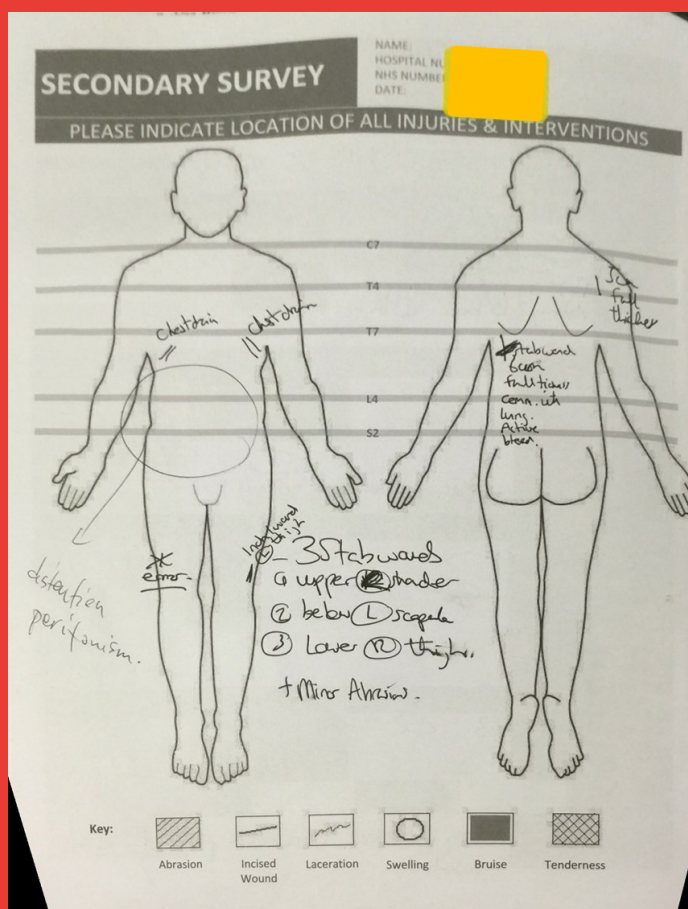 SECONDARY SURVEY
NAME:
HOSPITAL NU
NHS NUMBER
DATE:
PLEASE INDICATE LOCATION OF ALL INJURIES & INTERVENTIONS
C7
T4
T7
L4
S2
Chest drain
Chest drain
5cm
full
stab wound
6cm
full
comm. with
lung.
Active
distention
peritonism.
error
- 3 Stab wounds
upper
② below Ⓛ scapula
③ Lower Ⓡ thigh.
+ Minor Abrasions.
Key:
Abrasion
Incised
Wound
Laceration
Swelling
Bruise
Tenderness